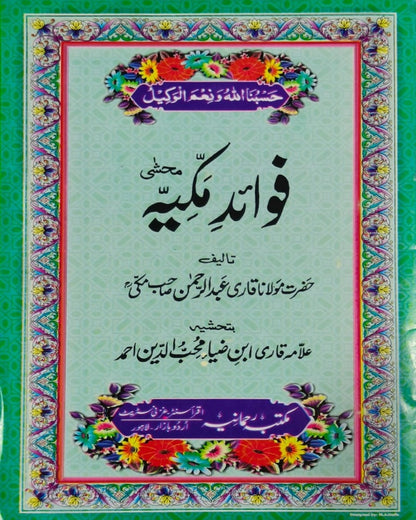 حَسْبُنَا اللّٰهُ وَنِعْمَ الْوَكِيْلُ
محشی
فوائدِ مکّیہ
تالیف
حضرت مولانا قاری عبدالرحمٰن صاحب مکیؒ
بتحشیہ
علامہ قاری ابنِ ضیاء محب الدین احمد
مکتبہ رحمانیہ
اقرا سنٹر غزنی سٹریٹ
اردو بازار ۔ لاہور